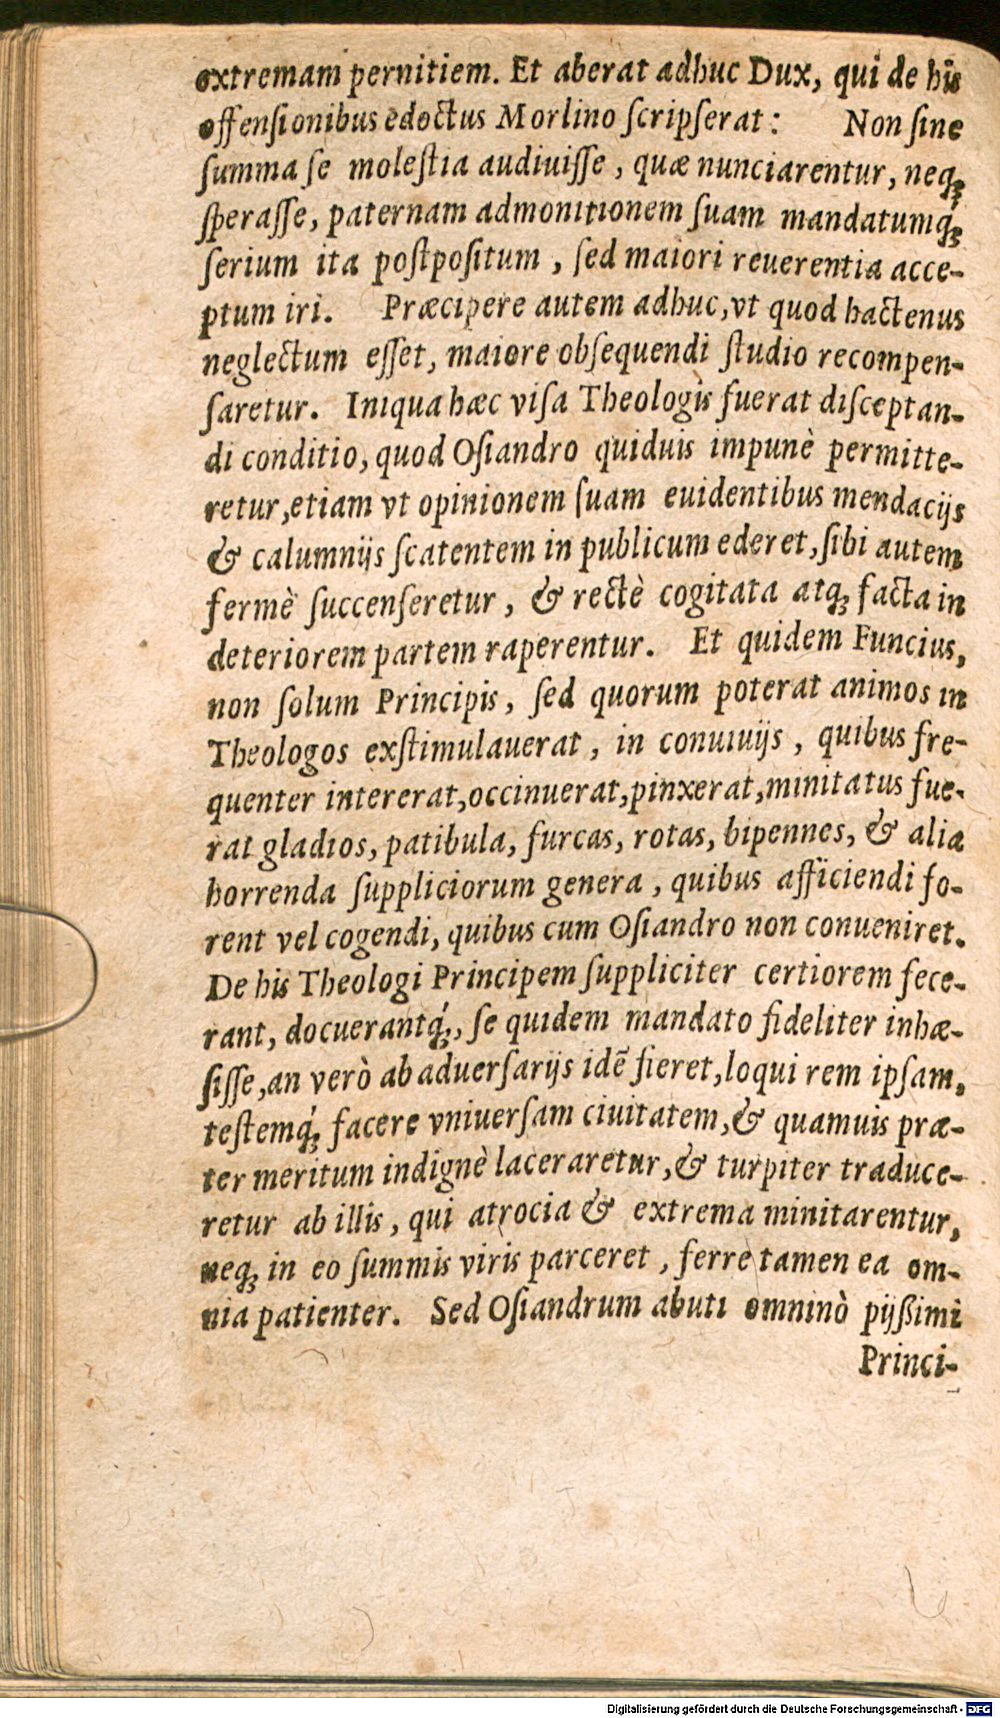 extremam pernitiem. Et aberat adhuc Dux, qui de his
offenſionibus edoctus Morlino ſcripſerat: Non ſine
ſumma ſe moleſtia audiuiſſe, quæ nunciarentur, neq;
ſperaſſe, paternam admonitionem ſuam mandatumq́;
ſerium ita poſtpoſitum, ſed maiori reuerentia acce-
ptum iri. Præcipere autem adhuc, vt quod hactenus
neglectum eſſet, maiore obſequendi ſtudio recompen-
ſaretur. Iniqua hæc viſa Theologis fuerat diſceptan-
di conditio, quod Oſiandro quiduis impunè permitte-
retur, etiam vt opinionem ſuam euidentibus mendacijs
& calumnijs ſcatentem in publicum ederet, ſibi autem
fermè ſuccenſeretur, & rectè cogitata atq; facta in
deteriorem partem raperentur. Et quidem Funcius,
non ſolum Principis, ſed quorum poterat animos in
Theologos exſtimulauerat, in conuiuijs, quibus fre-
quenter intererat, occinuerat, pinxerat, minitatus fue-
rat gladios, patibula, furcas, rotas, bipennes, & alia
horrenda ſuppliciorum genera, quibus afficiendi fo-
rent vel cogendi, quibus cum Oſiandro non conueniret.
De his Theologi Principem ſuppliciter certiorem fece-
rant, docuerantq́;, ſe quidem mandato fideliter inhæ-
ſiſſe, an verò ab aduerſarijs idē fieret, loqui rem ipſam,
teſtemq́; facere vniuerſam ciuitatem, & quamuis præ-
ter meritum indignè laceraretur, & turpiter traduce-
retur ab illis, qui atrocia & extrema minitarentur,
neq; in eo ſummis viris parceret, ferre tamen ea om-
nia patienter. Sed Oſiandrum abuti omninò pijßimi
Princi-
Digitalisierung gefördert durch die Deutsche Forschungsgemeinschaft - DFG